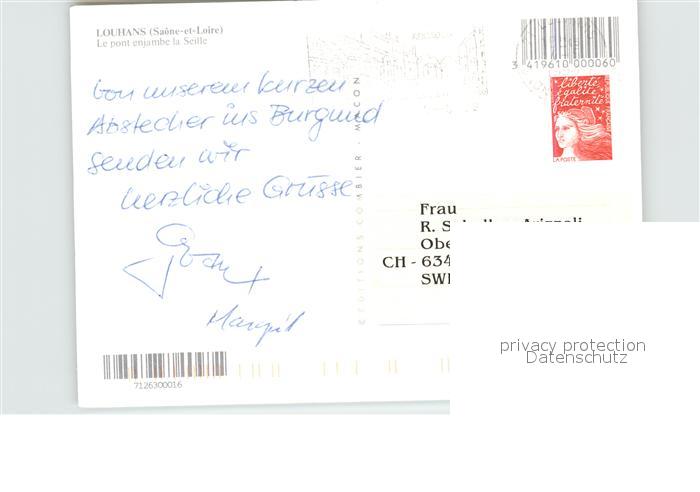 LOUHANS (Saône-et-Loire)
Le pont enjambe la Seille
Von unserem kurzen
Abstecher ins Burgund
senden wir
herzliche Grüsse
Margrit
7126300016
©EDITIONS COMBIER - MACON
3 419610 000060
liberté
égalité
fraternité
FRANCE
LA POSTE
Frau
R.
CH - 634
privacy protection
Datenschutz